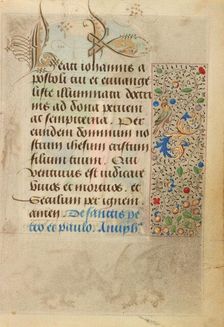 Beati iohannis a
postoli tui et euange
liste illuminata doctri
nis ad dona perueni
at sempiterna. Per
eundem dominum no
strum ihesum cristum
filium tuum. Qui
venturus est iudicare
viuos et mortuos. et
Seculum per ignem.
amen. De sanctis pe
tro et paulo. Anuph̄.